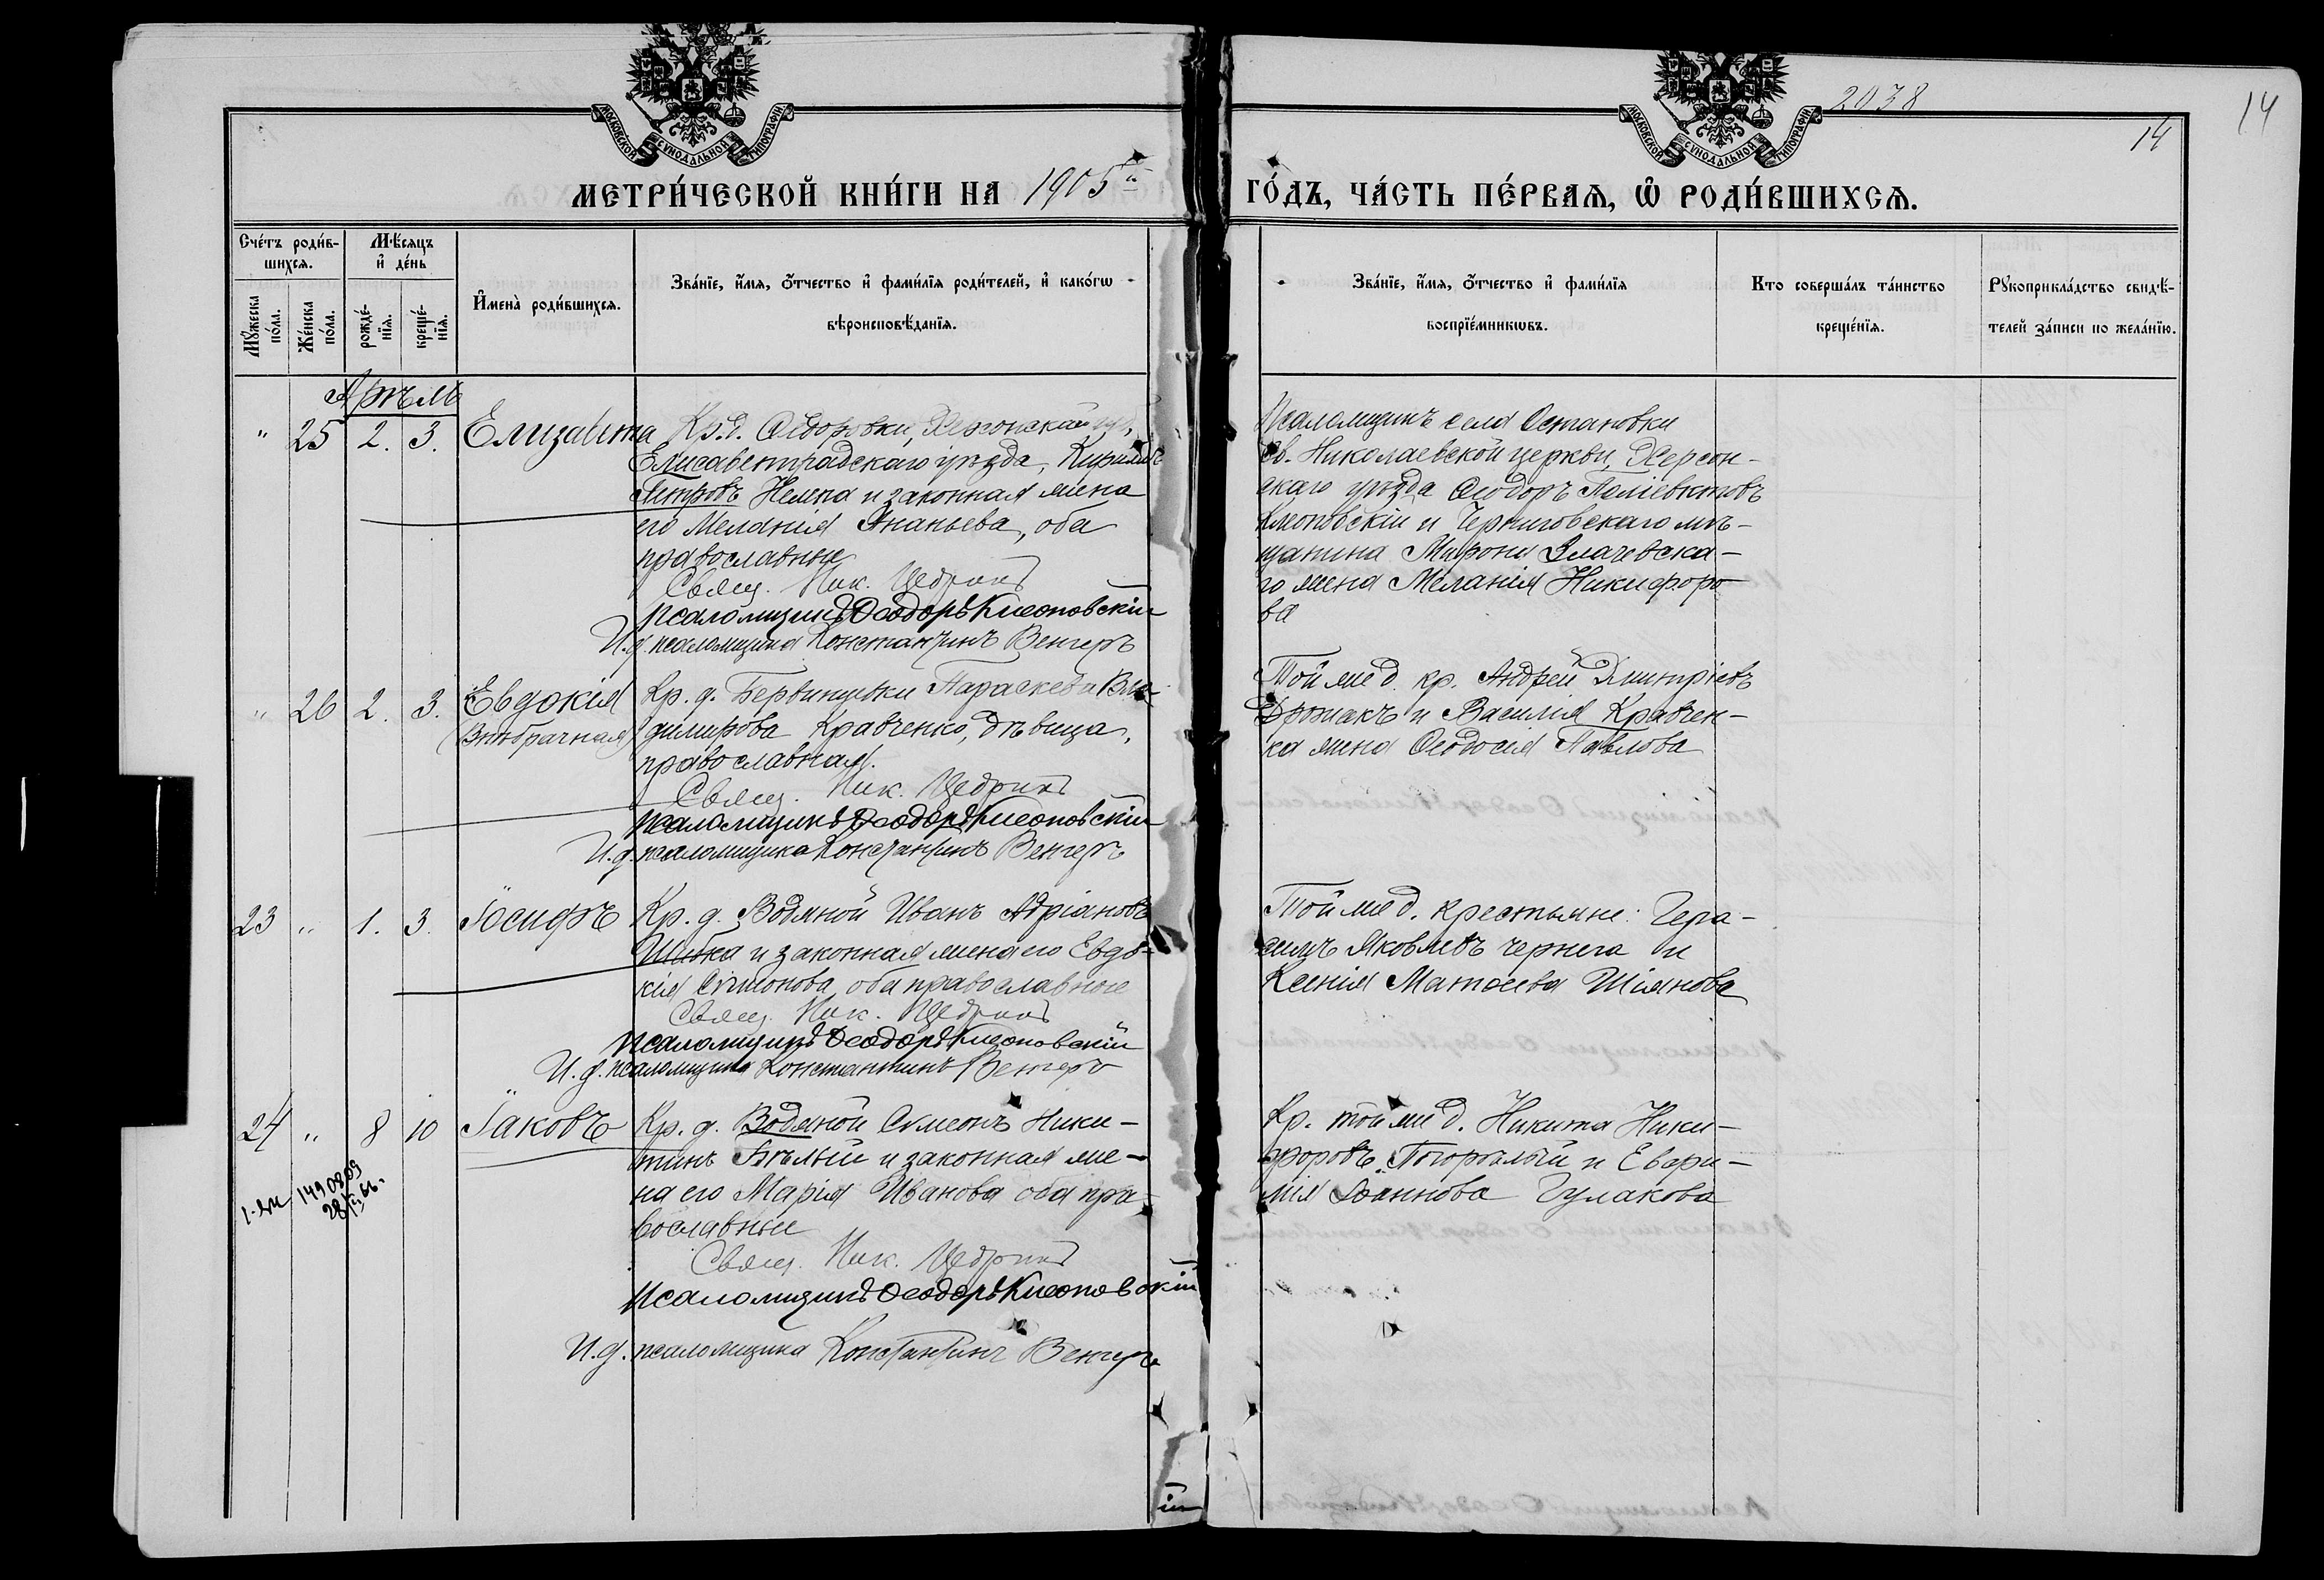 МОСКОВСКОЙ СУНОДАЛЬНОЙ ТИПОГРАФІИ
МОСКОВСКОЙ СУНОДАЛЬНОЙ ТИПОГРАФІИ
2038
14
14
МЕТРИ́ЧЕСКОЙ КНИ́ГИ НА 1905 й ГО́ДЪ, ЧА́СТЬ ПЕ́РВАЯ, Ѡ҆ РОДИ́ВШИХСЯ.
Сче́тъ роди́в-
шихся.
Мѣ́сяцъ
и҆ де́нь
Мꙋ́жеска
по́ла.
Же́нска
по́ла.
рожде́-
нїя.
креще́-
нїя.
И҆мена̀ роди́вшихся.
Зва́нїе, и҆́мя, ѻ҆́тчество и҆ фами́лїя роди́телей, и҆ како́гѡ
вѣроисповѣ́данїя.
Зва́нїе, и҆́мя, ѻ҆́тчество и҆ фами́лїя
воспрїе́мникѡвъ.
Кто соверша́лъ та́инство
креще́нїя.
Рꙋкоприкла́дство свидѣ́-
телей за́писи по жела́нїю.
Апрѣль
" 25 2. 3. Елизавета
Кр. д. Ѳедоровки, Херсонской губ,
Елисаветградскаго уѣзда, Кириллъ
Петровъ Немена и законная жена
его Меланія Ананьева, оба
православные
Свящ. Ник. Щедринъ
Псаломщикъ Ѳеодоръ Клеоповскій
И.д. псаломщика Константинъ Венгеръ
Псаломщикъ села Остановки
Св. Николаевской церкви, Херсон-
скаго уѣзда Ѳеодоръ Поліевктовъ
Клеоповскій и Черниговскаго мѣ-
щанина Мирона Злачевска-
го жена Меланія Никифоро
ва
" 26 2. 3. Евдокія
(Внѣбрачная)
Кр. д. Бервинцевки Параскева Вла
димирова Кравченко, дѣвица,
православная.
Свящ. Ник. Щедринъ
Псаломщикъ Ѳеодоръ Клеоповскій
И.д. псаломщика Константинъ Венгеръ
Той же д. кр. Андрей Димитріевъ
Дрожакъ и Василія Кравчен-
ка жена Ѳеодосія Павлова
23 " 1. 3. Іосифъ
Кр. д. Водяной Иванъ Адріановъ
Шибка и законная жена его Евдо-
кія Симонова, оба православные
Свящ. Ник. Щедринъ
Псаломщикъ Ѳеодоръ Клеоповскій
И.д. псаломщика Константинъ Венгеръ
Той же д. крестьяне: Гера-
симъ Яковлевъ Чернега и
Ксенія Матѳеева Шіянова
24 " 8 10 Іаковъ
149 0809
28/XI 66.
Кр. д. Водяной Сѵмеонъ Ники-
тинъ Бѣлый и законная же-
на его Марія Иванова оба пра-
вославные
Свящ. Ник. Щедринъ
Псаломщикъ Ѳеодоръ Клеоповскій
И.д. псаломщика Константинъ Венгеръ
Кр. той же д. Никита Ники-
форовъ Погорѣлый и Евфи-
мія Іоаннова Гулакова